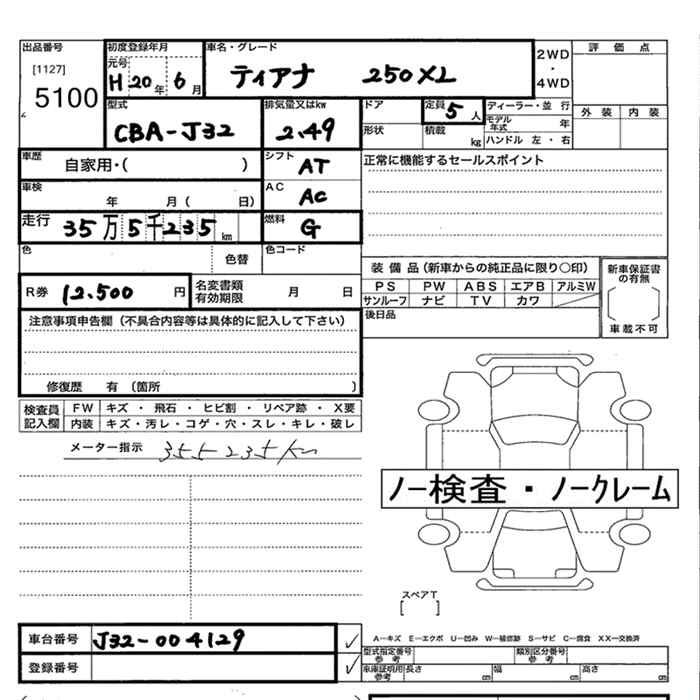 出品番号
[1127]
5100
初度登録年月
元号
H20年 6月
車名・グレード
ティアナ 250XL
2WD
・
4WD
評価点
外装 内装
型式
CBA-J32
排気量又はkw
2.49
ドア
形状
定員 5人
積載 kg
ディーラー・並行
モデル年式 年
ハンドル 左・右
車歴
自家用・( )
シフト
AT
正常に機能するセールスポイント
車検
年 月( 日)
AC
AC
走行 35万5千235km
燃料
G
色 色替
色コード
装備品(新車からの純正品に限り○印)
PS PW ABS エアB アルミW
サンルーフ ナビ TV カワ
新車保証書の有無
車載不可
R券 12.500円
名変書類有効期限 月 日
後日品
注意事項申告欄(不具合内容等は具体的に記入して下さい)
修復歴 有(箇所 )
検査員記入欄
FW キズ・飛石・ヒビ割・リペア跡・X要
内装 キズ・汚レ・コゲ・穴・スレ・キレ・破レ
メーター指示 355235km
ノー検査・ノークレーム
スペアT
[ ]
車台番号 J32-004129
登録番号
A−キズ E−エクボ U−凹み W−補修跡 S−サビ C−腐食 XX−交換済
型式指定番号 参考
類別区分番号 参考
車庫証明用 参考 長さ cm 幅 cm 高さ cm